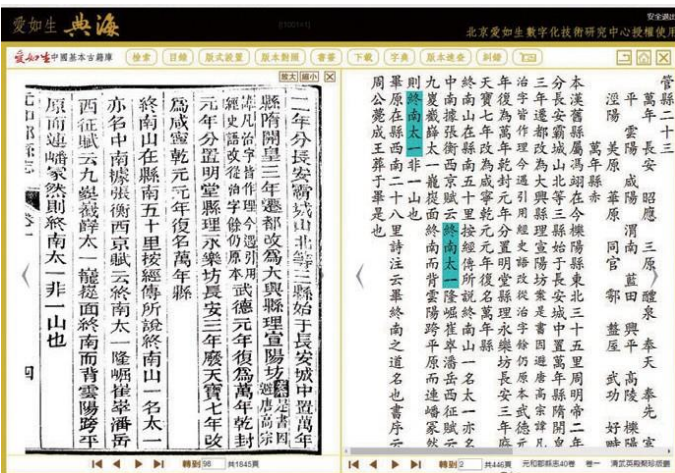 愛如生 典海
安全退出
北京愛如生數字化技術研究中心授權使用
愛如生中國基本古籍庫
檢索 目錄 版式設置 版本對照 書簽 下載 字典 版本速查 糾錯
放大 縮小
二年分長安霸城山北等三縣始于長安城中置萬年
縣隋開皇三年遷都改爲大興縣理宣陽坊
武德元年復爲萬年乾封
元年分置明堂縣理永樂坊長安三年廢天寶七年改
爲咸寧乾元元年復名萬年縣
終南山在縣南五十里按經傳所說終南山一名太一
亦名中南據張衡西京賦云終南太一隆崛崔崒潘岳
西征賦云九嵕嶻嶭太一巃嵸面終南而背雲陽跨平
原而連嶓冢然則終南太一非一山也
卷一
四
管縣二十三
萬年 長安 昭應 三原 醴泉 奉天 奉先
平 雲陽 咸陽 渭南 藍田 興平 高陵 櫟陽
涇陽 美原 華原 同官 鄠 盩厔 武功 好畤
萬年縣赤
本漢舊縣屬馮翊在今櫟陽縣東北三十五里周明帝二年
分長安霸城山北等三縣始于長安城中置萬年縣隋開皇
三年遷都改爲大興縣理宣陽坊案是書因避唐高宗諱凡
治字皆作理今遇引用經史語改從治字餘仍原本武德元
年復爲萬年乾封元年分置明堂縣理永樂坊長安三年廢
天寶七年改爲咸寧乾元元年復名萬年縣
終南山在縣南五十里按經傳所說終南山一名太一亦名
中南據張衡西京賦云終南太一隆崛崔崒潘岳西征賦云
九嵕嶻嶭太一巃嵸面終南而背雲陽跨平原而連嶓冢然
則終南太一非一山也
畢原在縣西南二十八里詩注云畢終南之道名也書序云
周公薨成王葬于畢是也
轉到 98 共1845頁
轉到 2 共446頁 元和郡縣志40卷 卷一 清武英殿聚珍版叢